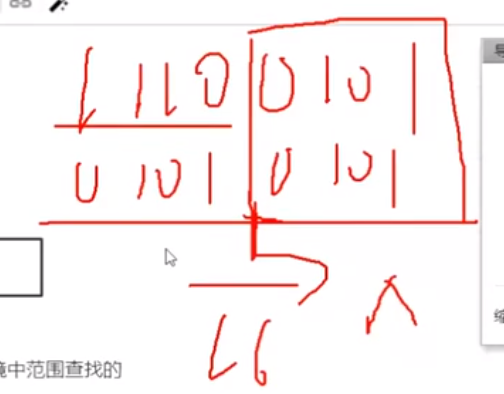 1110 0101
0101 0101
导
16 ^
缩
境中范围查找的